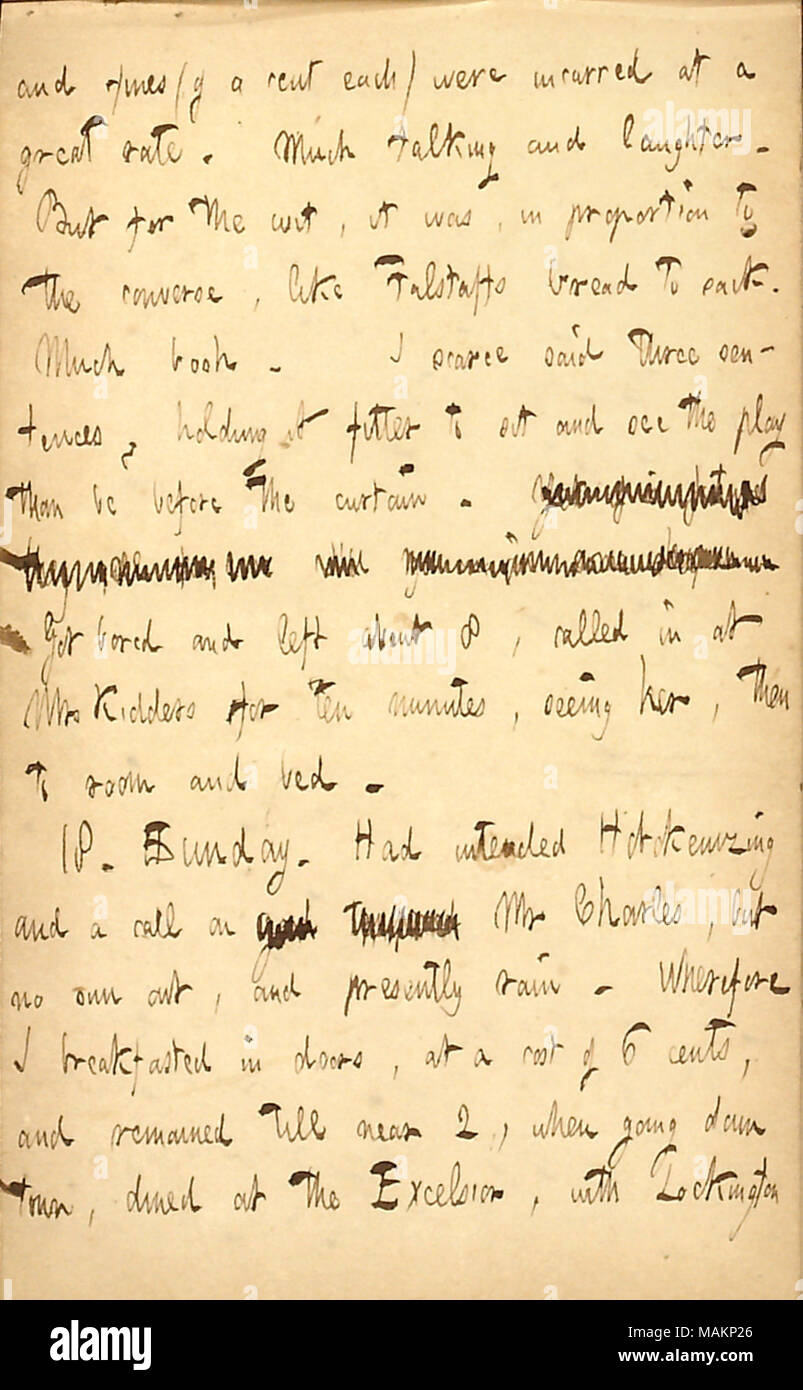 and fines (of a cent each) were incurred at a
great rate. Much talking and laughter.
But for the wit, it was, in proportion to
the converse, like Falstaffs bread to sack.
Much bosh. I scarce said three sen-
tences, holding it fitter to sit and see the play
than be before the curtain.
Got bored and left about 8, called in at
Mrs Kidders for ten minutes, seeing her, then
to room and bed.
18. Sunday. Had intended Hobokenizing
and a call on Mr Charles, but
no sun out, and presently rain. Wherefore
I breakfasted in doors, at a cost of 6 cents,
and remained till near 2, when going down
town, dined at the Excelsior, with Lockington
alamy
Image ID: MAKP26
www.alamy.com